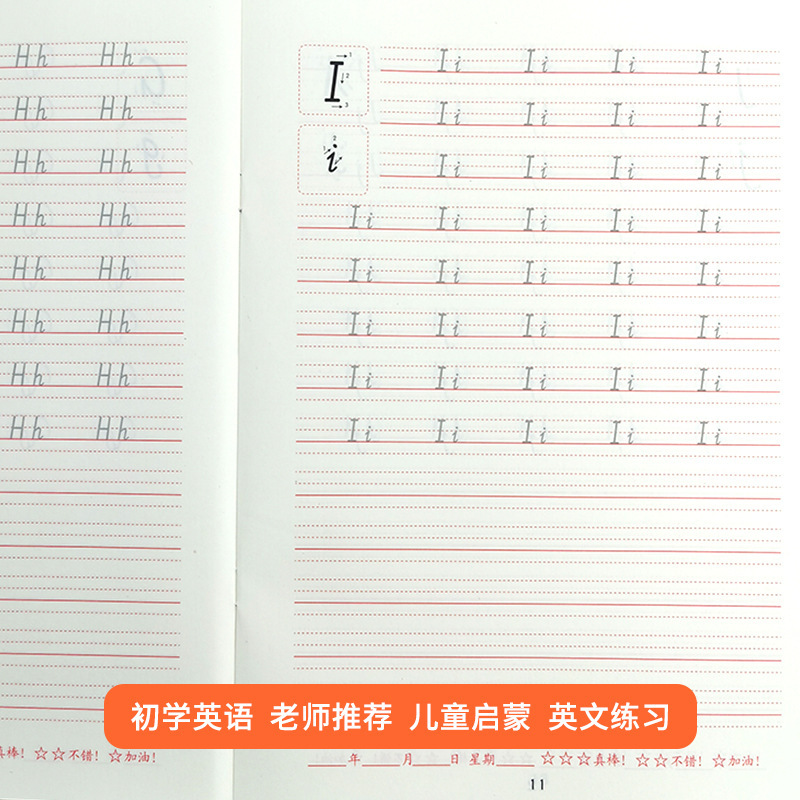 Hh Hh
Hh Hh
Hh Hh
Hh Hh
Hh Hh
Hh Hh
Hh Hh
Hh Hh
真棒! ☆☆不错! ☆加油!
I
1
2
3
i
1
2
Ii Ii Ii Ii
Ii Ii Ii Ii
Ii Ii Ii Ii
Ii Ii Ii Ii Ii
Ii Ii Ii Ii Ii
Ii Ii Ii Ii Ii
Ii Ii Ii Ii Ii
Ii Ii Ii Ii Ii
初学英语 老师推荐 儿童启蒙 英文练习
____年____月____日 星期____ ☆☆☆真棒! ☆☆不错! ☆加油!
11